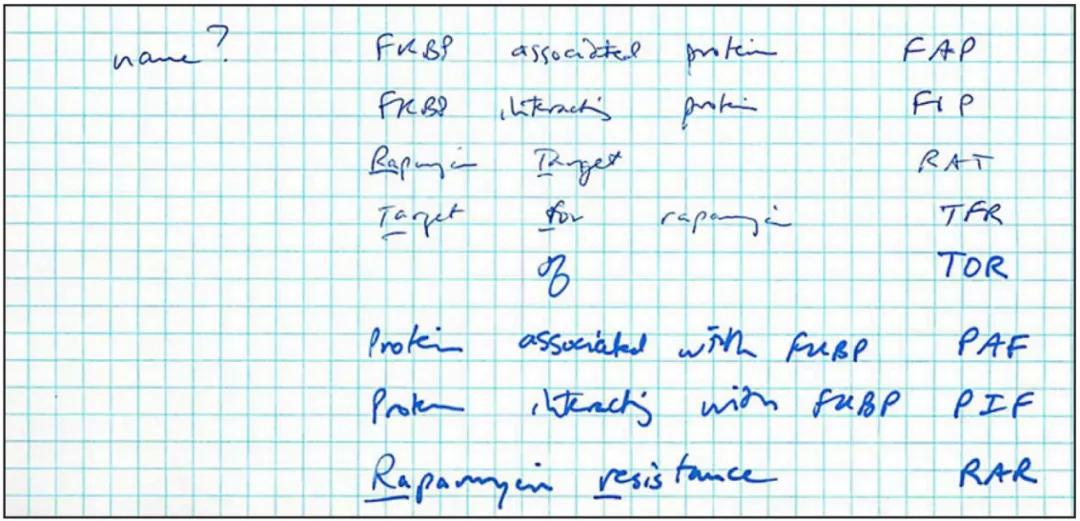 name? FKBP associated protein FAP
FKBP interacting protein FIP
Rapamycin Target RAT
Target for rapamycin TFR
of TOR
Protein associated with FKBP PAF
Protein interacting with FKBP PIF
Rapamycin resistance RAR